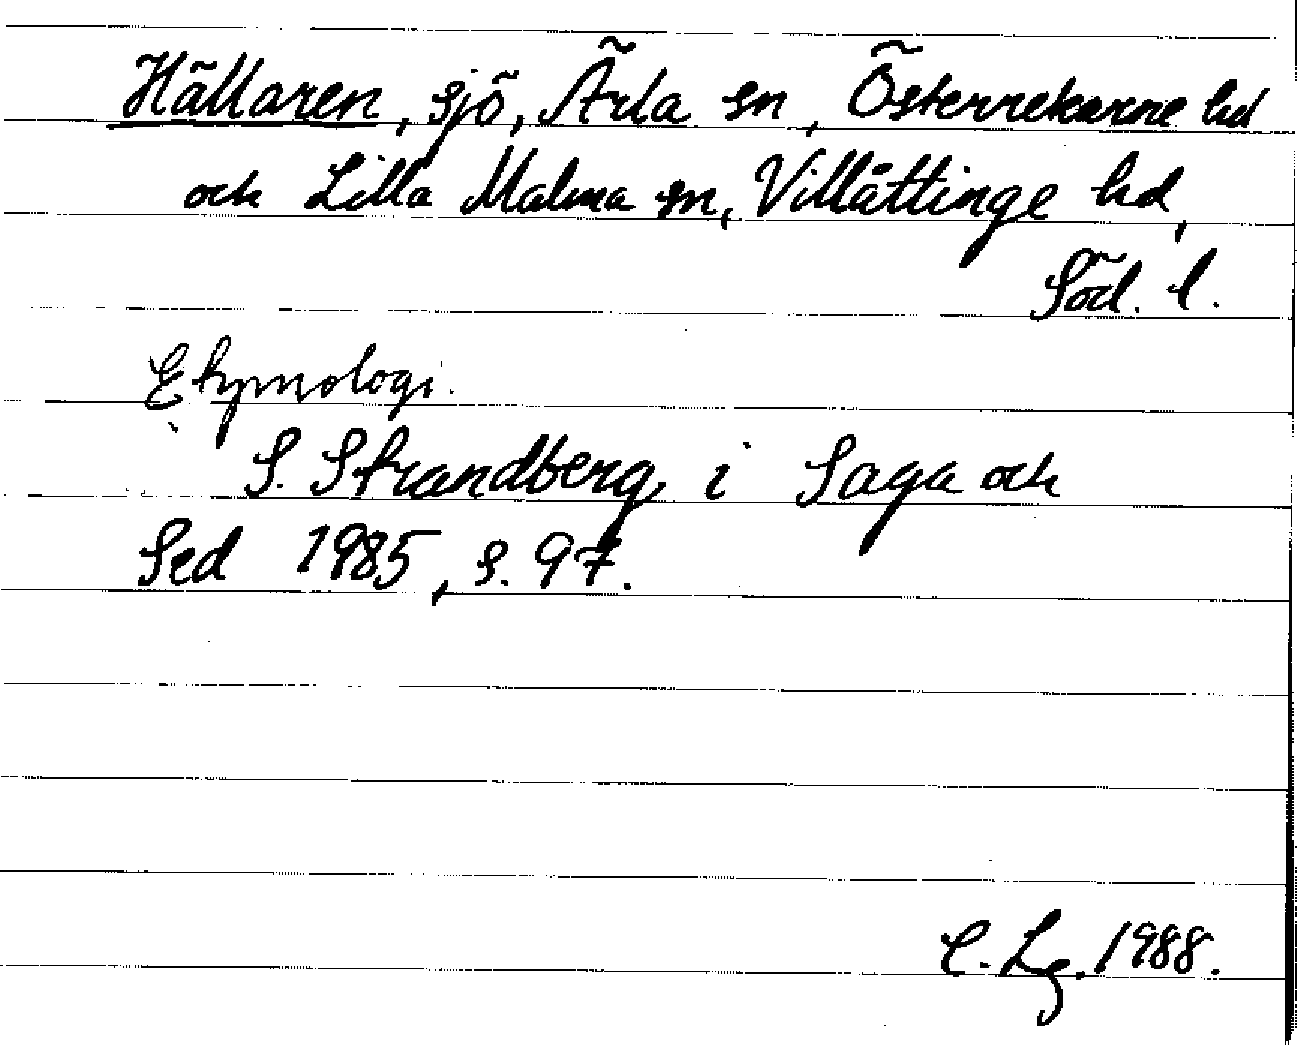 Hällaren, sjö, Ärla sn, Österrekarne hd
och Lilla Malma sn, Villåttinge hd,
Söd. l.
Etymologi.
S. Strandberg i Saga och
Sed 1985, s. 97.
C. Lg. 1988.